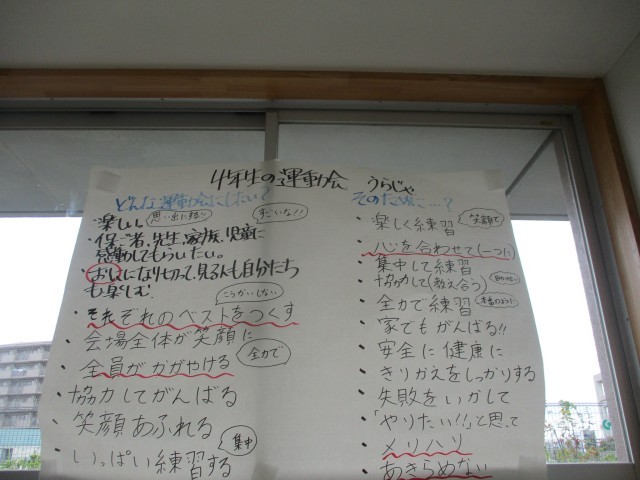 4年生の運動会 うらじゃ
どんな運動会にしたい?
・楽しい 思い出に残る すごいな!!
・保ご者、先生、家族、児童に
感動してもらいたい。
・おにになり切って、見る人も自分たち
も楽しむ こうかいしない
・それぞれのベストをつくす
・会場全体が笑顔に
・全員がかがやける 全力で
・協力してがんばる
・笑顔あふれる
・いっぱい練習する 集中
そのために…?
・楽しく練習 笑顔で
・心を合わせて(一つに)
・集中して練習
・協力して(教え合う)
・全力で練習 本番のように
・家でもがんばる!!
・安全に健康に
・きりかえをしっかりする
・失敗をいかして
・「やりたい!!」と思って
・メリハリ
・あきらめない